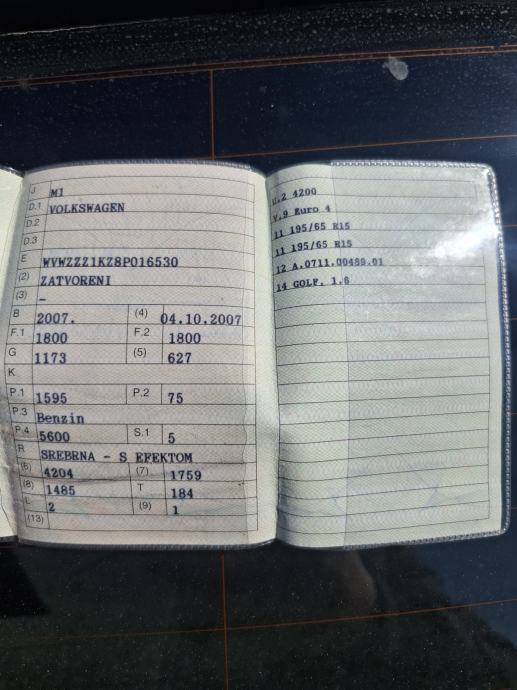 J M1
D.1 VOLKSWAGEN
D.2
D.3
E WVWZZZ1KZ8P016530
(2) ZATVORENI
(3) -
B 2007. (4) 04.10.2007
F.1 1800 F.2 1800
G 1173 (5) 627
K
P.1 1595 P.2 75
P.3 Benzin
P.4 5600 S.1 5
R SREBRNA - S EFEKTOM
(6) 4204 (7) 1759
(8) 1485 T 184
L 2 (9) 1
(13)
U.2 4200
V.9 Euro 4
11 195/65 R15
11 195/65 R15
12 A.0711.00489.01
14 GOLF, 1.6